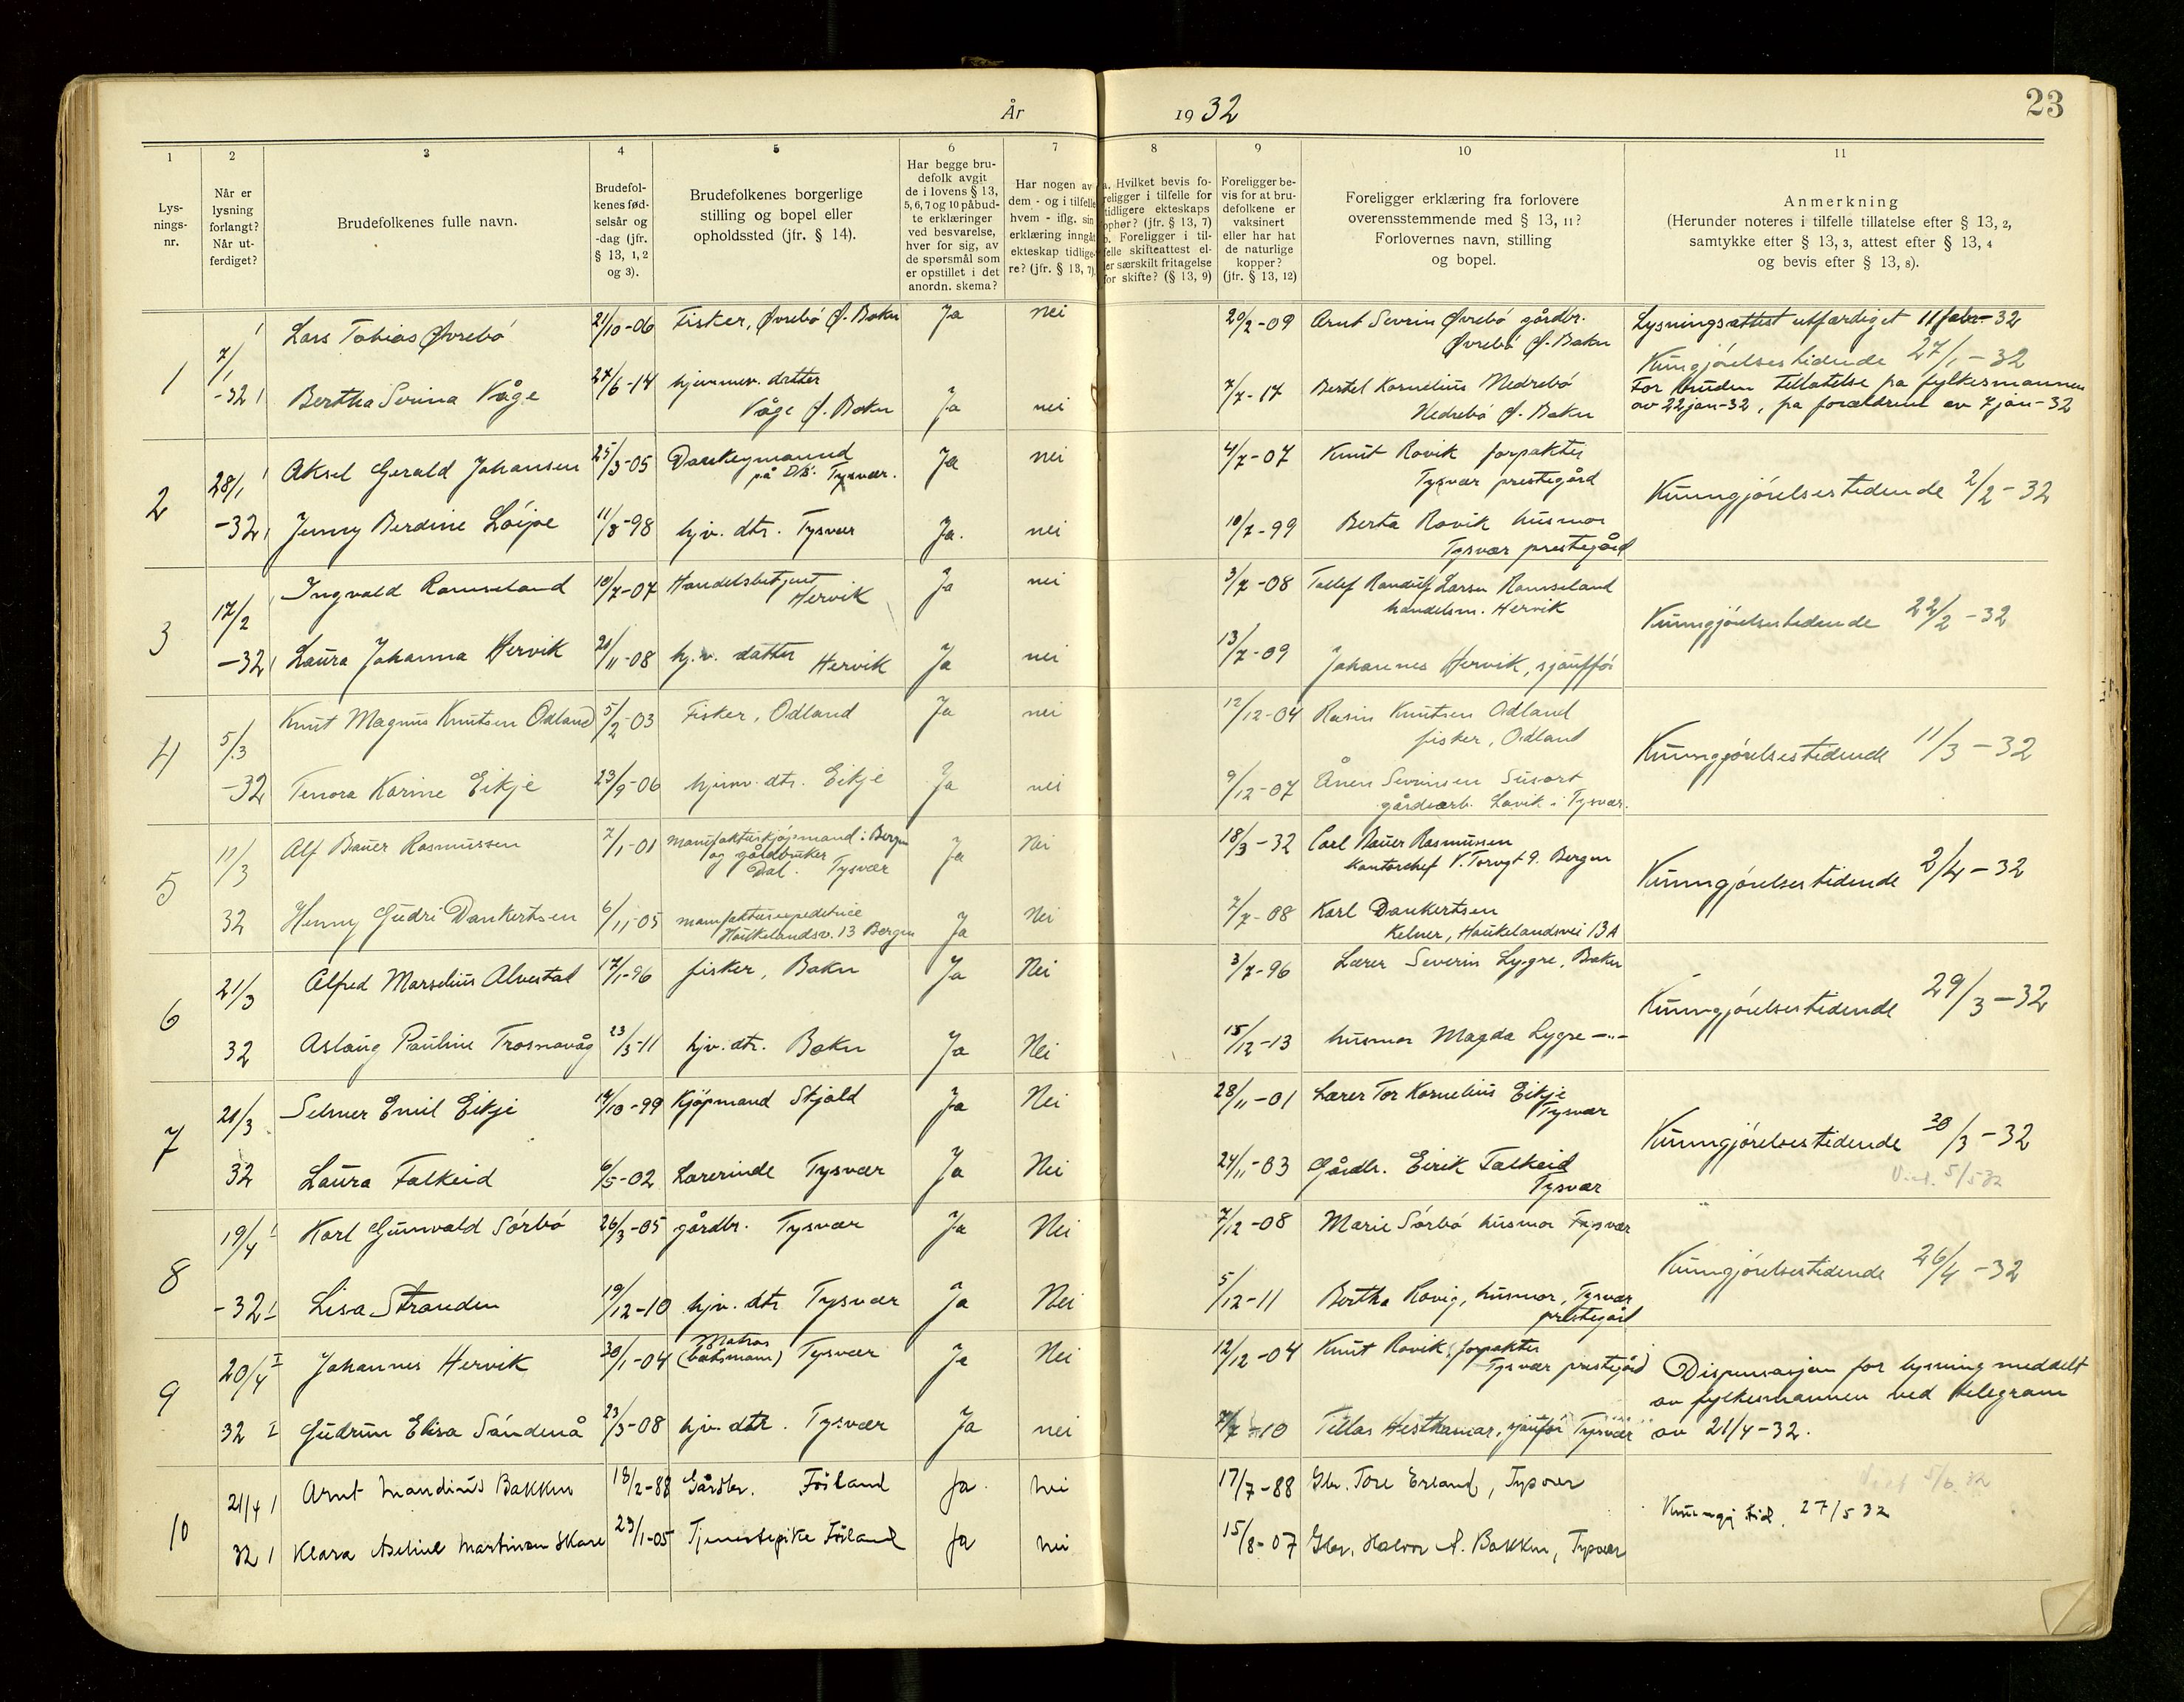 År 1932
23
1 2 3 4 5 6 7 8 9 10 11
Lys-
nings-
nr.
Når er
lysning
forlangt?
Når ut-
ferdiget?
Brudefolkenes fulle navn.
Brudefol-
kenes fød-
selsår og
-dag (jfr.
§ 13, 1, 2
og 3).
Brudefolkenes borgerlige
stilling og bopel eller
opholdssted (jfr. § 14).
Har begge bru-
defolk avgit
de i lovens § 13,
5, 6, 7 og 10 påbud-
te erklæringer
ved besvarelse,
hver for sig, av
de spørsmål som
er opstillet i det
anordn. skema?
Har nogen av
dem - og i tilfelle
hvem - iflg. sin
erklæring inngåt
ekteskap tidlige-
re? (jfr. § 13, 7).
a. Hvilket bevis fo-
religger i tilfelle for
tidligere ekteskaps
ophør? (jfr. § 13, 7)
b. Foreligger i til-
felle skifteattest el-
ler særskilt fritagelse
for skifte? (§ 13, 9)
Foreligger be-
vis for at bru-
defolkene er
vaksinert
eller har hat
de naturlige
kopper?
(jfr. § 13, 12)
Foreligger erklæring fra forlovere
overensstemmende med § 13, 11?
Forlovernes navn, stilling
og bopel.
Anmerkning
(Herunder noteres i tilfelle tillatelse efter § 13, 2,
samtykke efter § 13, 3, attest efter § 13, 4
og bevis efter § 13, 8).
1 7/1 Lars Tobias Øvrebö 21/10-06 Fisker, Øvrebö Ø. Bokn Ja nei 20/2-09 Arnt Sevrin Øvrebö gårdbr.
Øvrebö Ø. Bokn
Lysningsattest utfærdiget 11 febr-32
Kungjörelsestidende 27/1-32
-32 Bertha Serina Våge 27/6-14 hjemmev. datter
Våge Ø. Bokn Ja nei 7/7-17 Bertel Kornelius Nedrebö
Nedrebö Ø. Bokn
For bruden tillatelse fra fylkesmannen
av 22 jan-32, fra forældrene av 7 jan-32
2 28/1 Aksel Gerald Johansen 25/3-05 Donkeymannd
på D/S: Tysvær. Ja nei 4/7-07 Knut Rovik forpakter
Tysvær prestegård
Kunngjörelsestidende 2/2-32
-32 Jenny Berdine Löipe 11/8-98 hjv. dtr. Tysvær Ja. nei 10/7-99 Berta Rovik husmor
Tysvær prestegård
3 17/2 Ingvald Ramseland 10/7-07 Handelsbetjent
Hervik Ja nei 3/7-08 Tollef Randulf Larsen Ramseland
handelsm. Hervik
Kunngjörelsestidende 22/2-32
-32 Laura Johanna Hervik 21/11-08 hj.v. datter Hervik Ja nei 13/7-09 Johannes Hervik, sjåufför
4 5/3 Knut Magnus Knutsen Odland 5/2-03 Fisker, Odland Ja nei 12/12-04 Rasin Knutsen Odland
fisker, Odland
Kunngjörelsestidende 11/3-32
-32 Tenora Karine Eikje 23/9-06 hjemv. dtr. Eikje Ja nei 9/12-07 Ånen Sevrinsen Susort
gårdsarb. Lovik i Tysvær.
5 11/3 Alf Bauer Rasmussen 7/1-01 manufakturkjöpmand i Bergen
og gårdbruker
Dal. Tysvær Ja Nei 18/3-32 Carl Bauer Rasmussen
kontorchef V. Torvgt 9. Bergen
Kunngjörelsestidende 2/4-32
32 Henny Gudri Dankertsen 6/11-05 manufakturexpeditrice
Haukelandsv. 13 Bergen Ja Nei 7/7-08 Karl Dankertsen
Kelner, Haukelandsvei 13A
6 21/3 Alfred Marselius Alvestad 17/1-96 fisker, Bokn Ja Nei 3/7-96 Lærer Severin Lygre, Bokn
Kunngjörelsestidende 29/3-32
32 Aslaug Pauline Trosnavåg 23/3-11 hjv. dtr. Bokn Ja Nei 15/12-13 husmor Magda Lygre -"-
7 21/3 Selmer Emil Eikje 14/10-99 Kjöpmand Skjold Ja Nei 28/11-01 Lærer Tor Kornelius Eikje
Tysvær
Kunngjörelsestidende 30/3-32
Viet. 5/5 32
32 Laura Falkeid 6/5-02 Lærerinde Tysvær Ja Nei 24/11-03 Gårdbr. Eirik Falkeid
Tysvær
8 19/4 Karl Gunvald Sörbö 26/3-05 gårdbr. Tysvær Ja Nei 7/12-08 Marie Sörbö husmor Tysvær
Kunngjörelsestidende 26/4-32
-32 Lisa Stranden 19/12-10 hjv. dtr Tysvær Ja Nei 5/12-11 Bertha Rovig, husmor, Tysvær
prestegård
9 20/4 Johannes Hervik 30/1-04 Matros
(båtsmann) Tysvær Ja Nei 12/12-04 Knut Rovik, forpakter
Tysvær prestegård
Dispensasjon for lysning meddelt
av fylkesmannen ved telegram
av 21/4-32.
32 Gudrun Elisa Sandenå 23/3-08 hjv. dtr. Tysvær Ja nei 7/7-10 Tillas Hesthamar, sjåuför Tysvær
10 21/4 Arnt Mandius Bakken 18/2-88 Gårdbr. Föiland Ja. nei 17/7-88 Gbr. Tore Erland, Tysvær
Viet 5/6 32
Kunngj tid. 27/5 32
32 Klara Aseline Martinsen Skare 23/1-05 Tjenestepike Föiland Ja nei 15/8-07 Gbr. Halvor A. Bakken, Tysvær